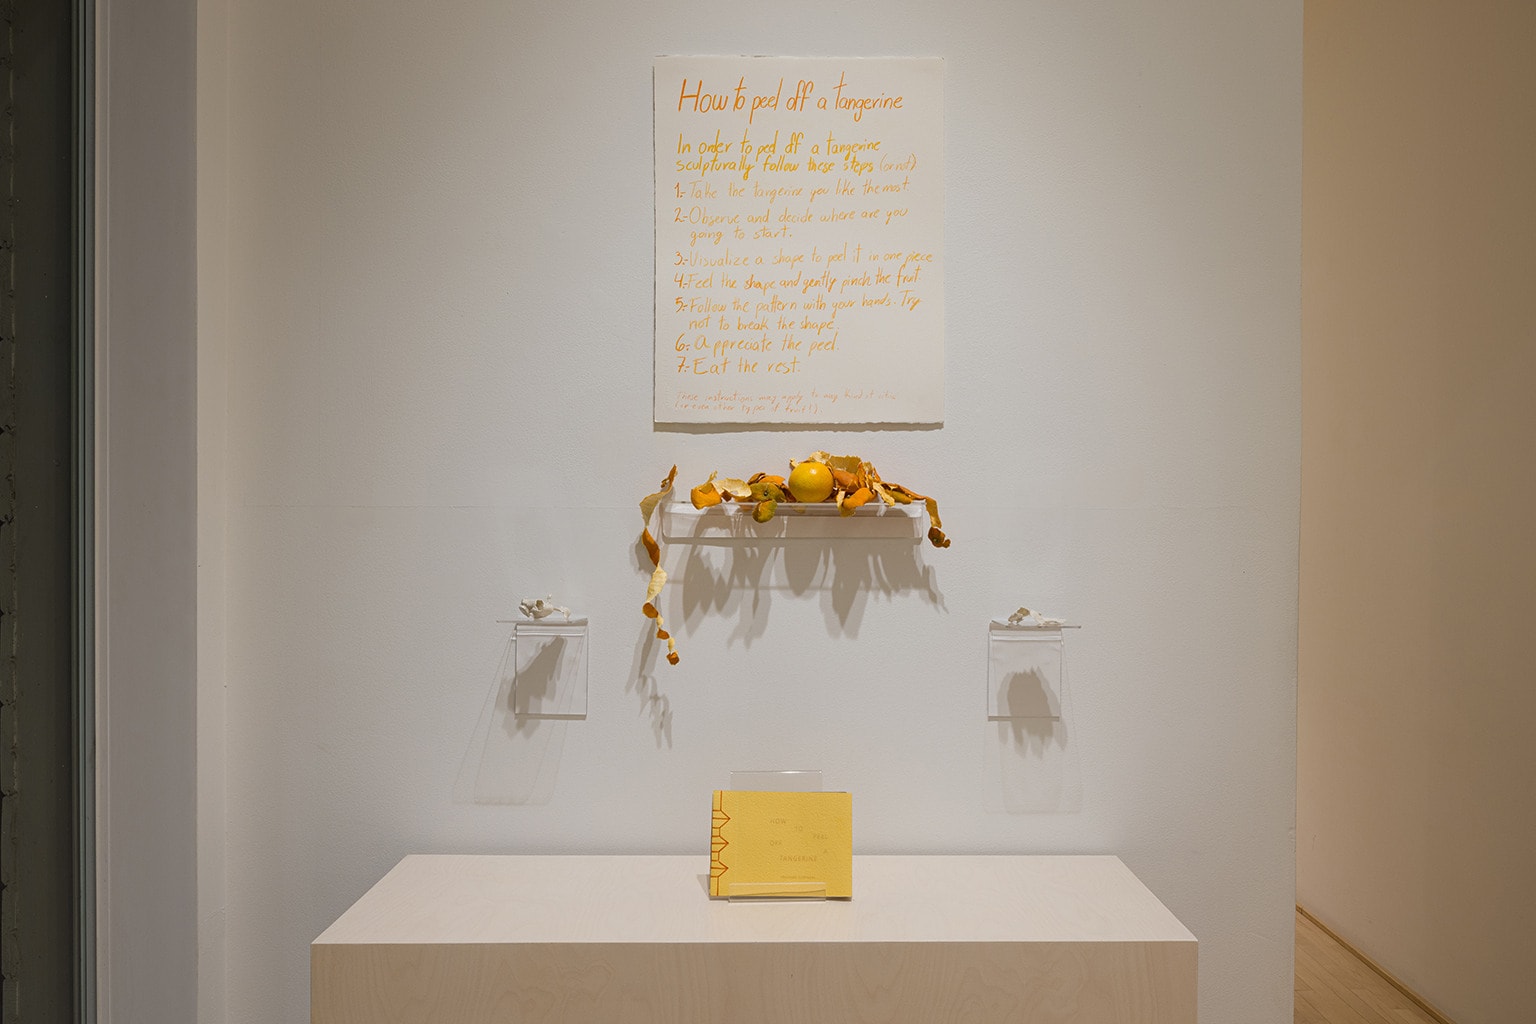 How to peel off a tangerine
In order to peel off a tangerine
sculpturally follow these steps (or not).
1.- Take the tangerine you like the most.
2.- Observe and decide where are you
going to start.
3.- Visualize a shape to peel it in one piece
4.- Feel the shape and gently pinch the fruit.
5.- Follow the pattern with your hands. Try
not to break the shape.
6.- Appreciate the peel.
7.- Eat the rest.
These instructions may apply to any kind of citrus
(or even other types of fruit!).
HOW
TO
PEEL
OFF
A
TANGERINE